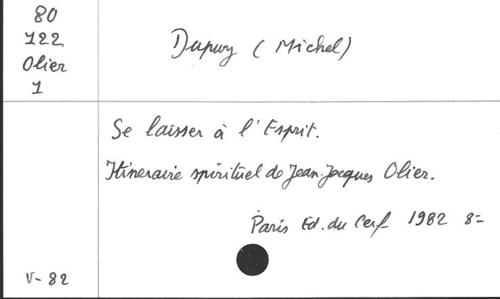 80
122
Olier
1
Dupuy (Michel)
Se laisser à l'Esprit.
Itineraire spirituel de Jean-Jacques Olier.
Paris Ed. du Cerf 1982 8=
V-82